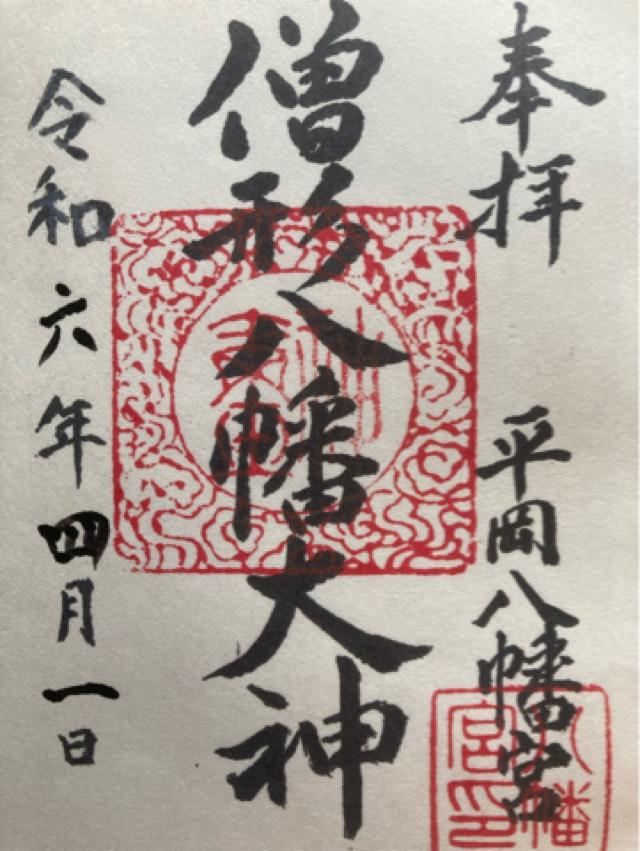 奉拝
平岡八幡宮
僧形八幡大神
令和六年四月一日
八幡宮印